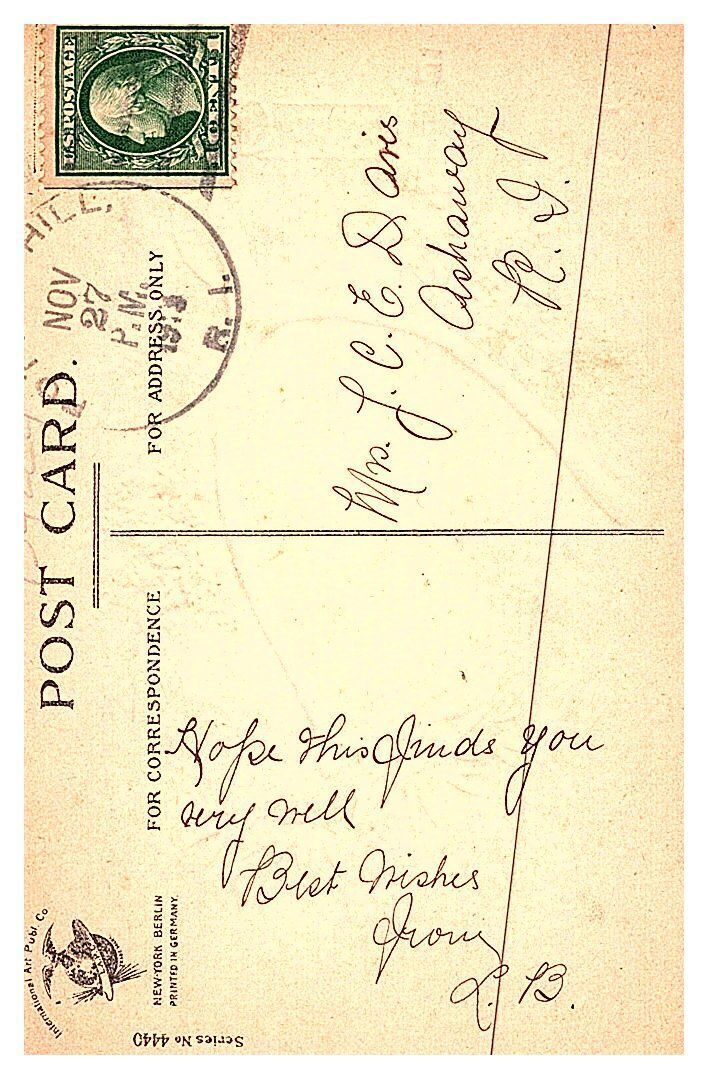 POST CARD.
U.S. POSTAGE
1 CENT 1
HILL,
NOV
27
P.M.
R. I.
FOR CORRESPONDENCE
FOR ADDRESS ONLY
Hope this finds you
very well
Best Wishes
From
L. B.
Mrs. J. C. E. Davis
Ashaway
R. I.
International Art Publ. Co
NEW-YORK BERLIN
PRINTED IN GERMANY.
Series No 4440